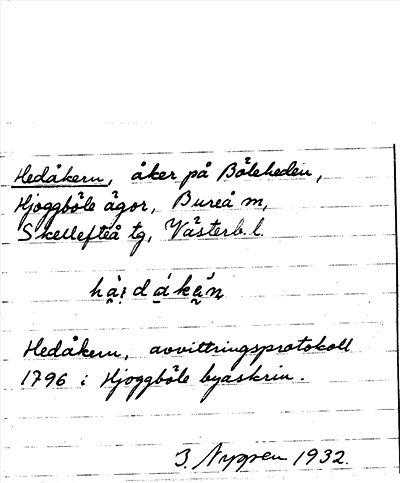 Hedåkern, åker på Böleheden,
Hjoggböle ägor, Bureå m,
Skellefteå tg, Västerb. l.
Hedåkern, avvittringsprotokoll
1796 i Hjoggböle byaskrin.
1932.